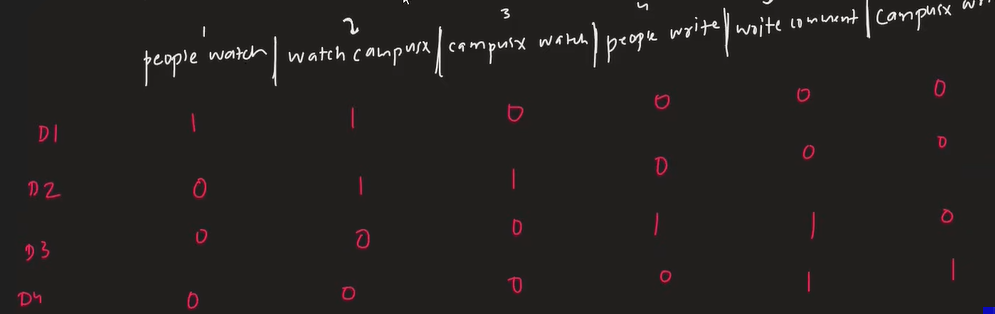 1 2 3 4
people watch | watch campusx | campusx watch | people write | write comment | campusx
D1 1 1 0 0 0 0
D2 0 1 1 0 0 0
D3 0 0 0 1 1 0
D4 0 0 0 0 1 1